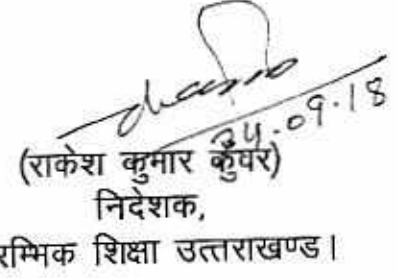 24.09.18
(राकेश कुमार कुँवर)
निदेशक,
रम्भिक शिक्षा उत्तराखण्ड।